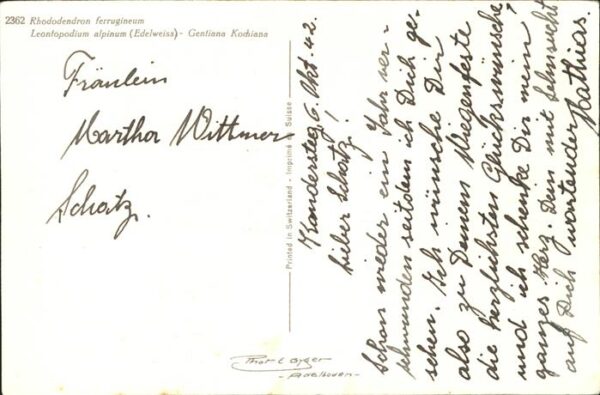 2362 Rhododendron ferrugineum
Leontopodium alpinum (Edelweiss) - Gentiana Kochiana
Fräulein
Martha Wittmer
Schatz.
Printed in Switzerland - Imprimé en Suisse
Kandersteg, 6. Okt. 42.
Lieber Schatz!
Schon wieder ein Jahr ver-
schwunden seitdem ich Dich ge-
sehen. Ich wünsche Dir
also zu Deinem Wiegenfeste
die herzlichsten Glückswünsche,
und ich schenke Dir mein
ganzes Herz. Dein mit Sehnsucht
auf Dich wartender Mathias.
Adelboden